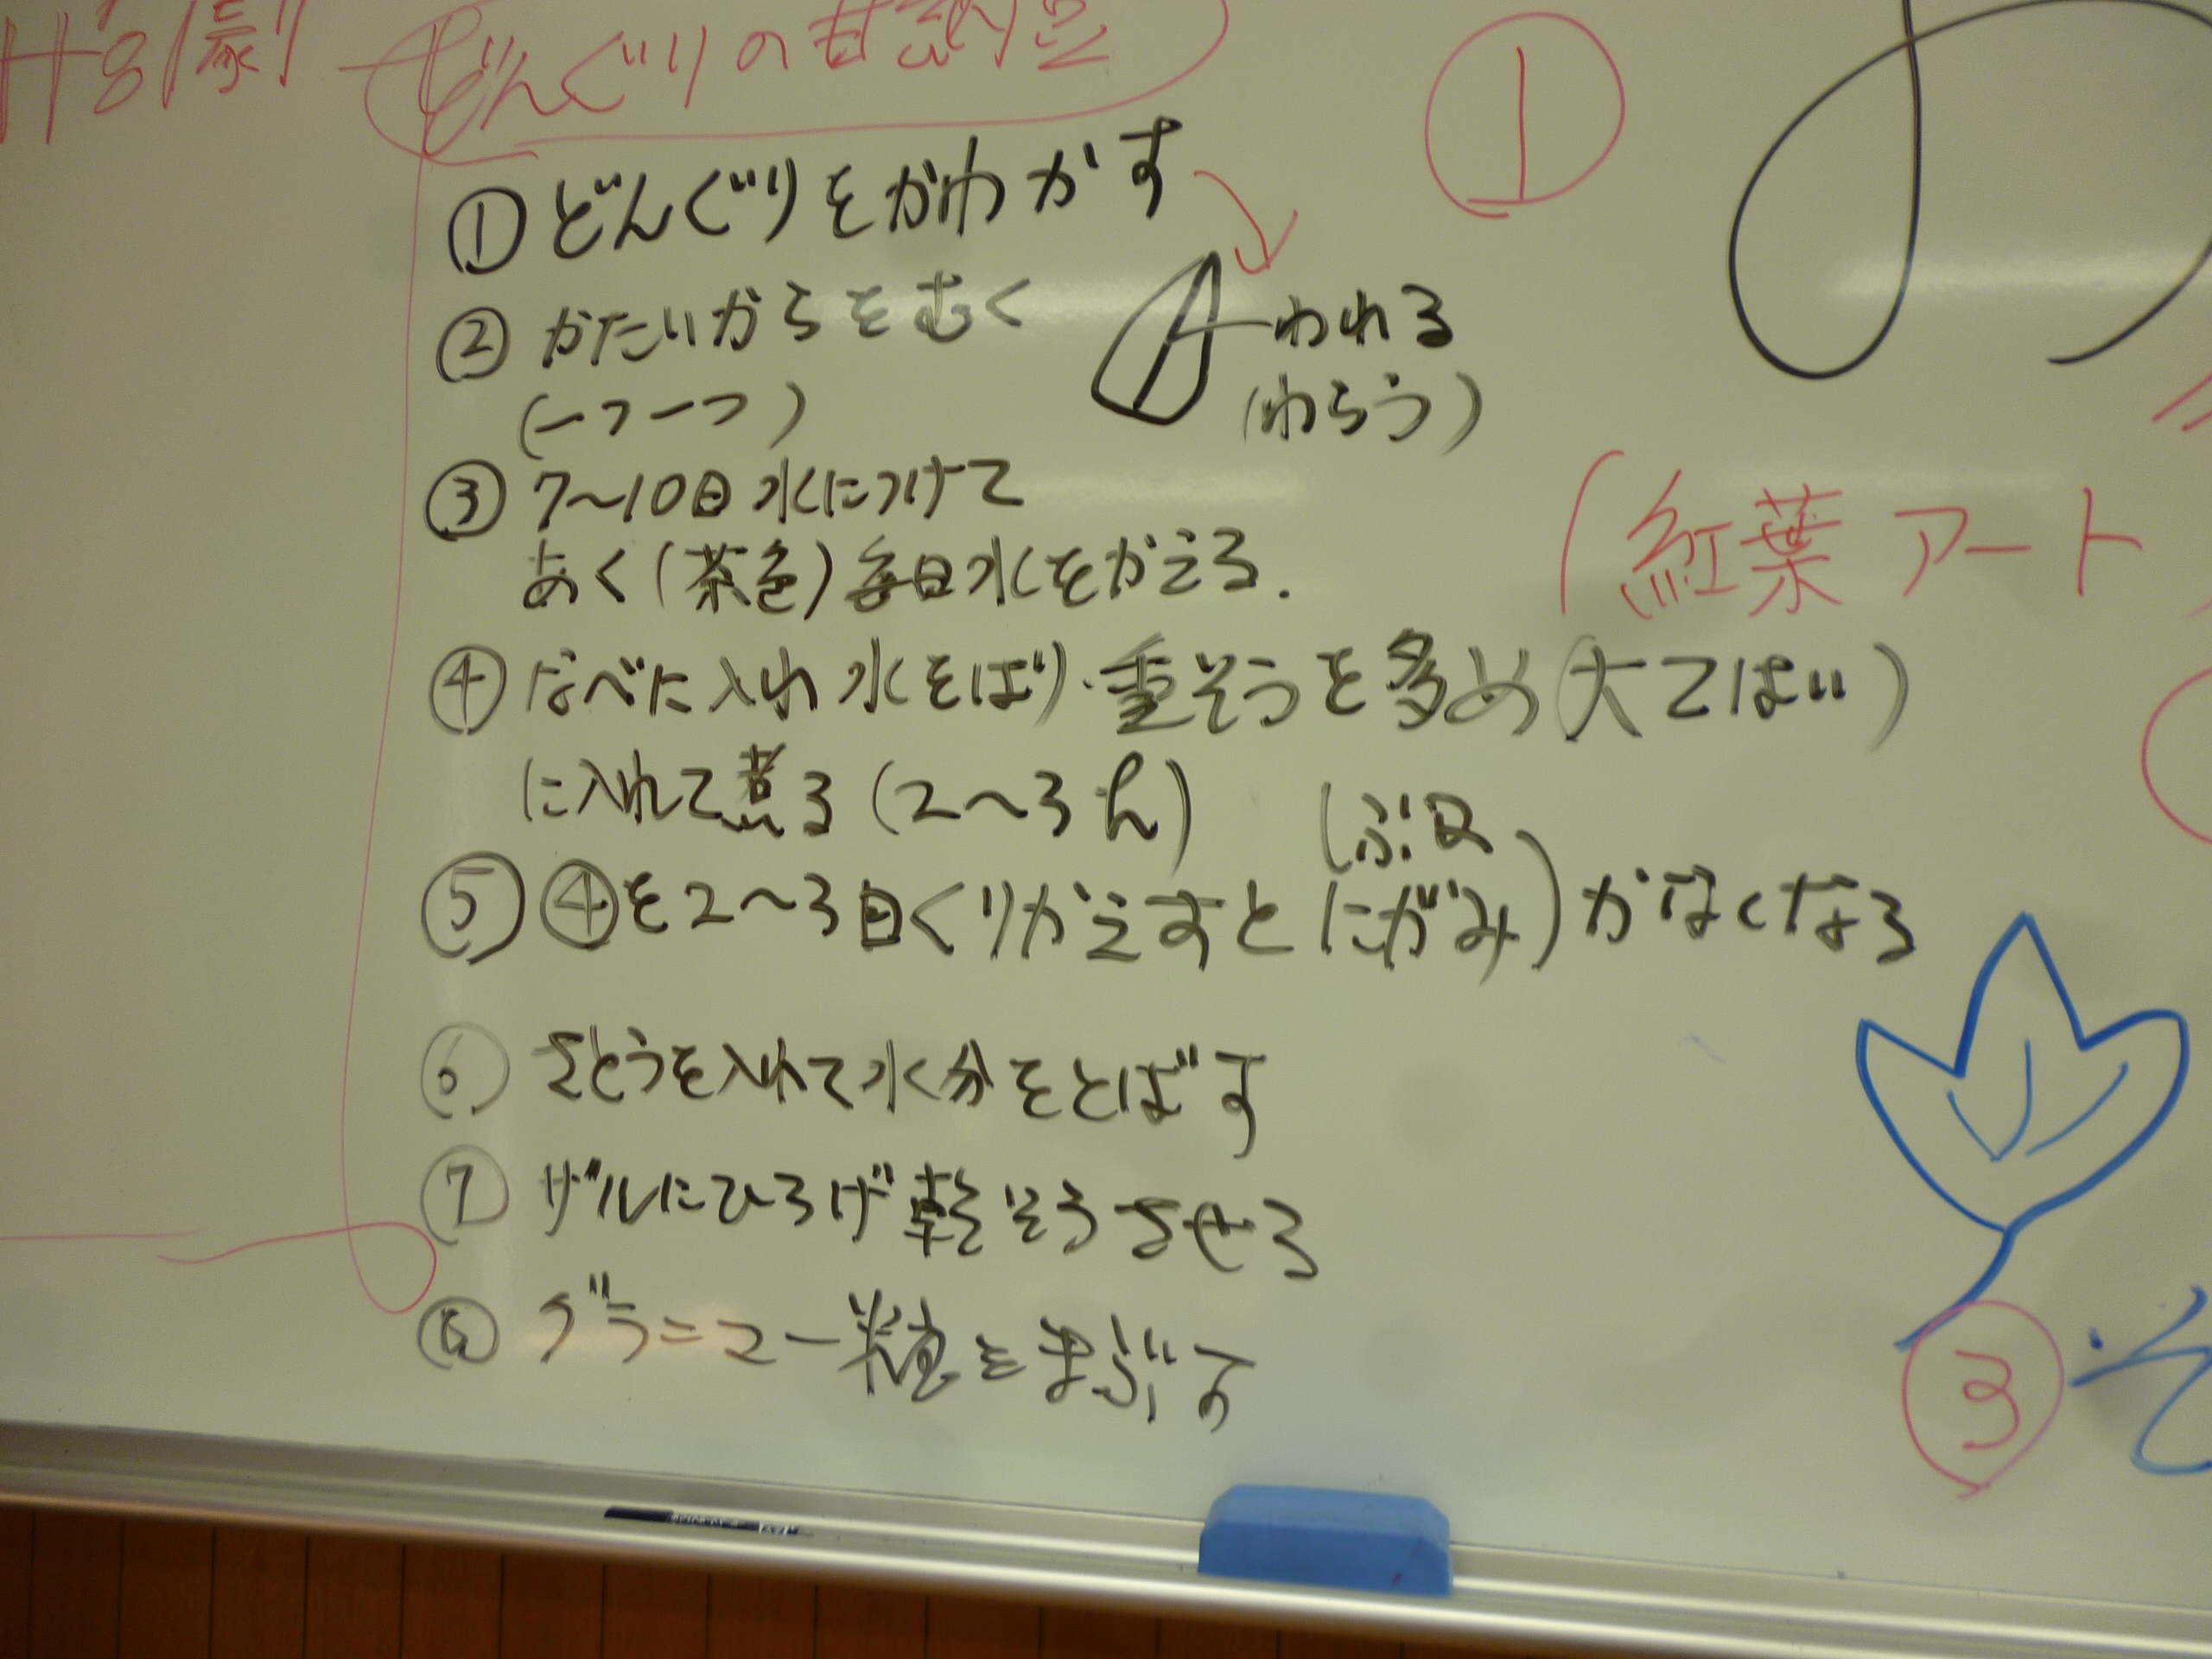 どんぐりの甘納豆
①どんぐりをかわかす
②かたいからをむく
(一つ一つ)
われる
(わらう)
③7〜10日水につけて
あく(茶色)毎日水をかえる.
④なべに入れ水をはり.重そうを多め(大てはい)
に入れて煮る(2〜3h)
⑤④を2〜3日くりかえすと(しぶ又
にがみ)がなくなる
⑥さとうを入れて水分をとばす
⑦ザルにひろげ乾そうさせる
⑧グラニュー糖をまぶす
①
(紅葉アート
③